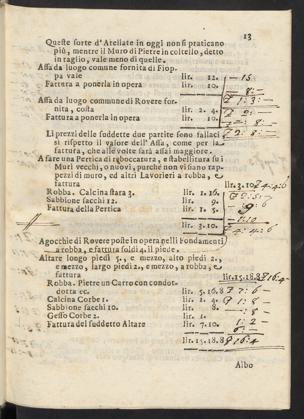 13
Queste sorte d'Atellate in oggi non si praticano
più, mentre il Muro di Pietre in coltello, detto
in taglio, vale meno di quelle.
Assa da luogo comune fornita di Piop-
pa vale lir. 12. — 15:
Fattura a ponerla in opera lir. 10. — 8:
1: 3: —
Assa da luogo commune di Rovere for-
nita, costa lir. 2. 4.
Fattura a ponerla in opera lir. 10. — 8:
Li prezzi delle suddette due partite sono fallaci
si rispetto il valore dell'Assa, come per la
fattura, che alle volte sarà assai maggiore.
A fare una Pertica di sgboccatura, e stabellitura sui
Muri vecchi, o nuovi, purchè non vi siano rap-
pezzi di muro, ed altri Lavorieri a robba, e
fattura lir. 3. 10.
Robba. Calcina stara 3. lir. 1. 16.
Sabbione sacchi 12. lir. 9.
Fattura della Pertica lir. 1. 5.
lir. 3. 10.
Agocchie di Rovere poste in opera nelli Fondamenti
a robba, e fattura soldi 4. il piede.
Altare longo piedi 5., e mezzo, alto piedi 2.,
e mezzo, largo piedi 2., e mezzo, a robba, e
fattura lir. 15. 18. 8
Robba. Pietre un Carro con condot-
dotta ec. lir. 5. 16. 8 7: 6 —
Calcina Corbe 1. lir. 1. 4. 1: 8 —
Sabbione sacchi 10. lir. 8. — : 8 —
Gesso Corbe 2. lir. 1. 1: 2 —
Fattura del suddetto Altare lir. 7. 10. 6 —
lir. 15. 18. 8 16: 4 —
Albo